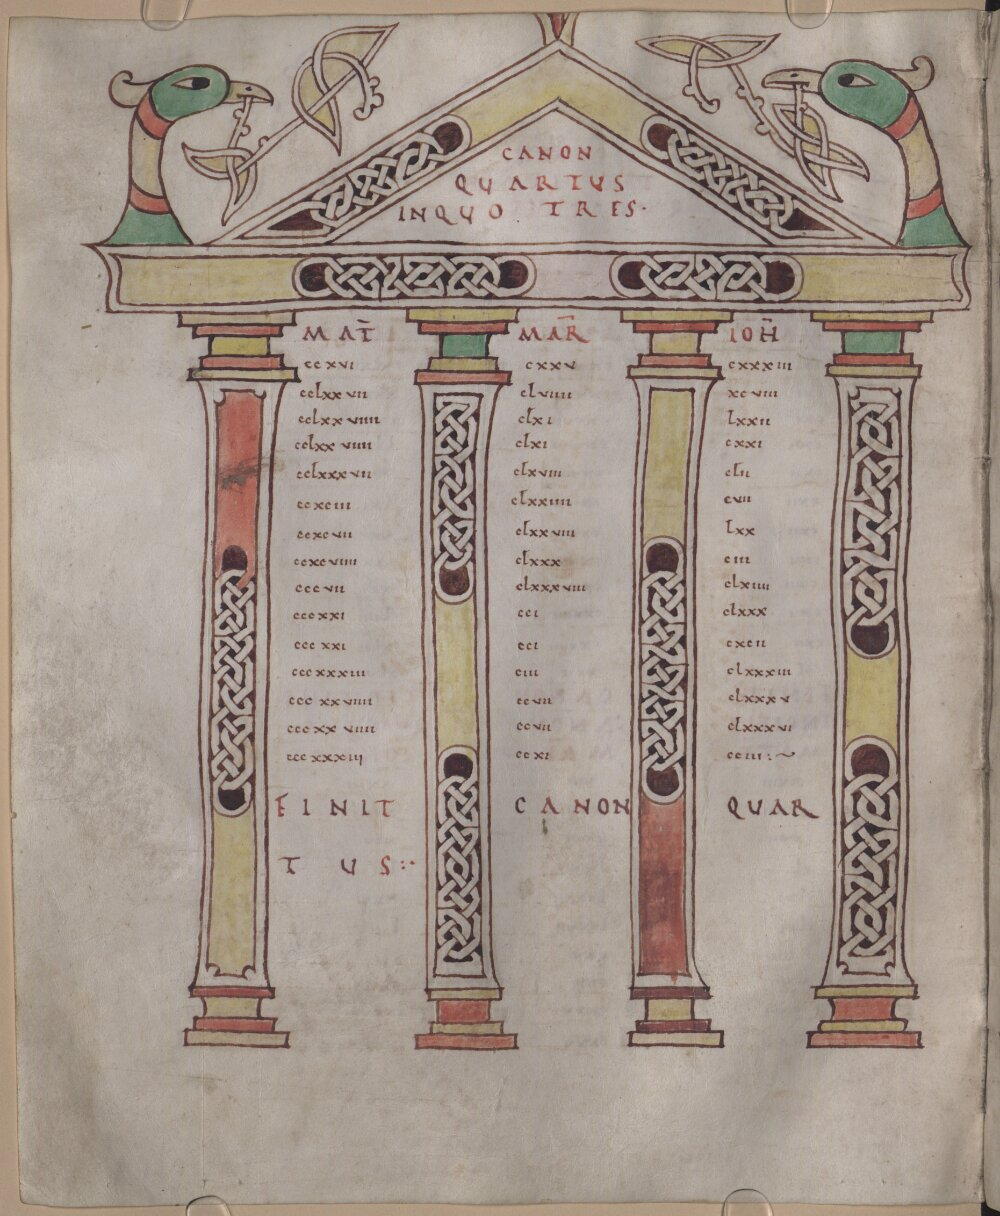 CANON
QUARTUS
INQUO TRES·
MAT̄ MAR̄ IOH̄
ccxvi cxxv cxxxiii
cclxxvii clviiii xcviii
cclxxviiii clxi lxxii
cclxxviiii clxi cxxi
cclxxxvii clxviii clii
ccxciii clxxiiii cvii
ccxcvii clxxviii lxx
ccxcviiii clxxx ciii
cccvii clxxxviiii clxiiii
cccxxi cci clxxx
cccxxi cci cxcii
cccxxxiii ciii clxxxiii
cccxxviiii ccvii clxxxv
cccxxviiii ccvii clxxxvi
cccxxxiij ccxi cciii:~
FINIT CANON QUAR
TUS:·